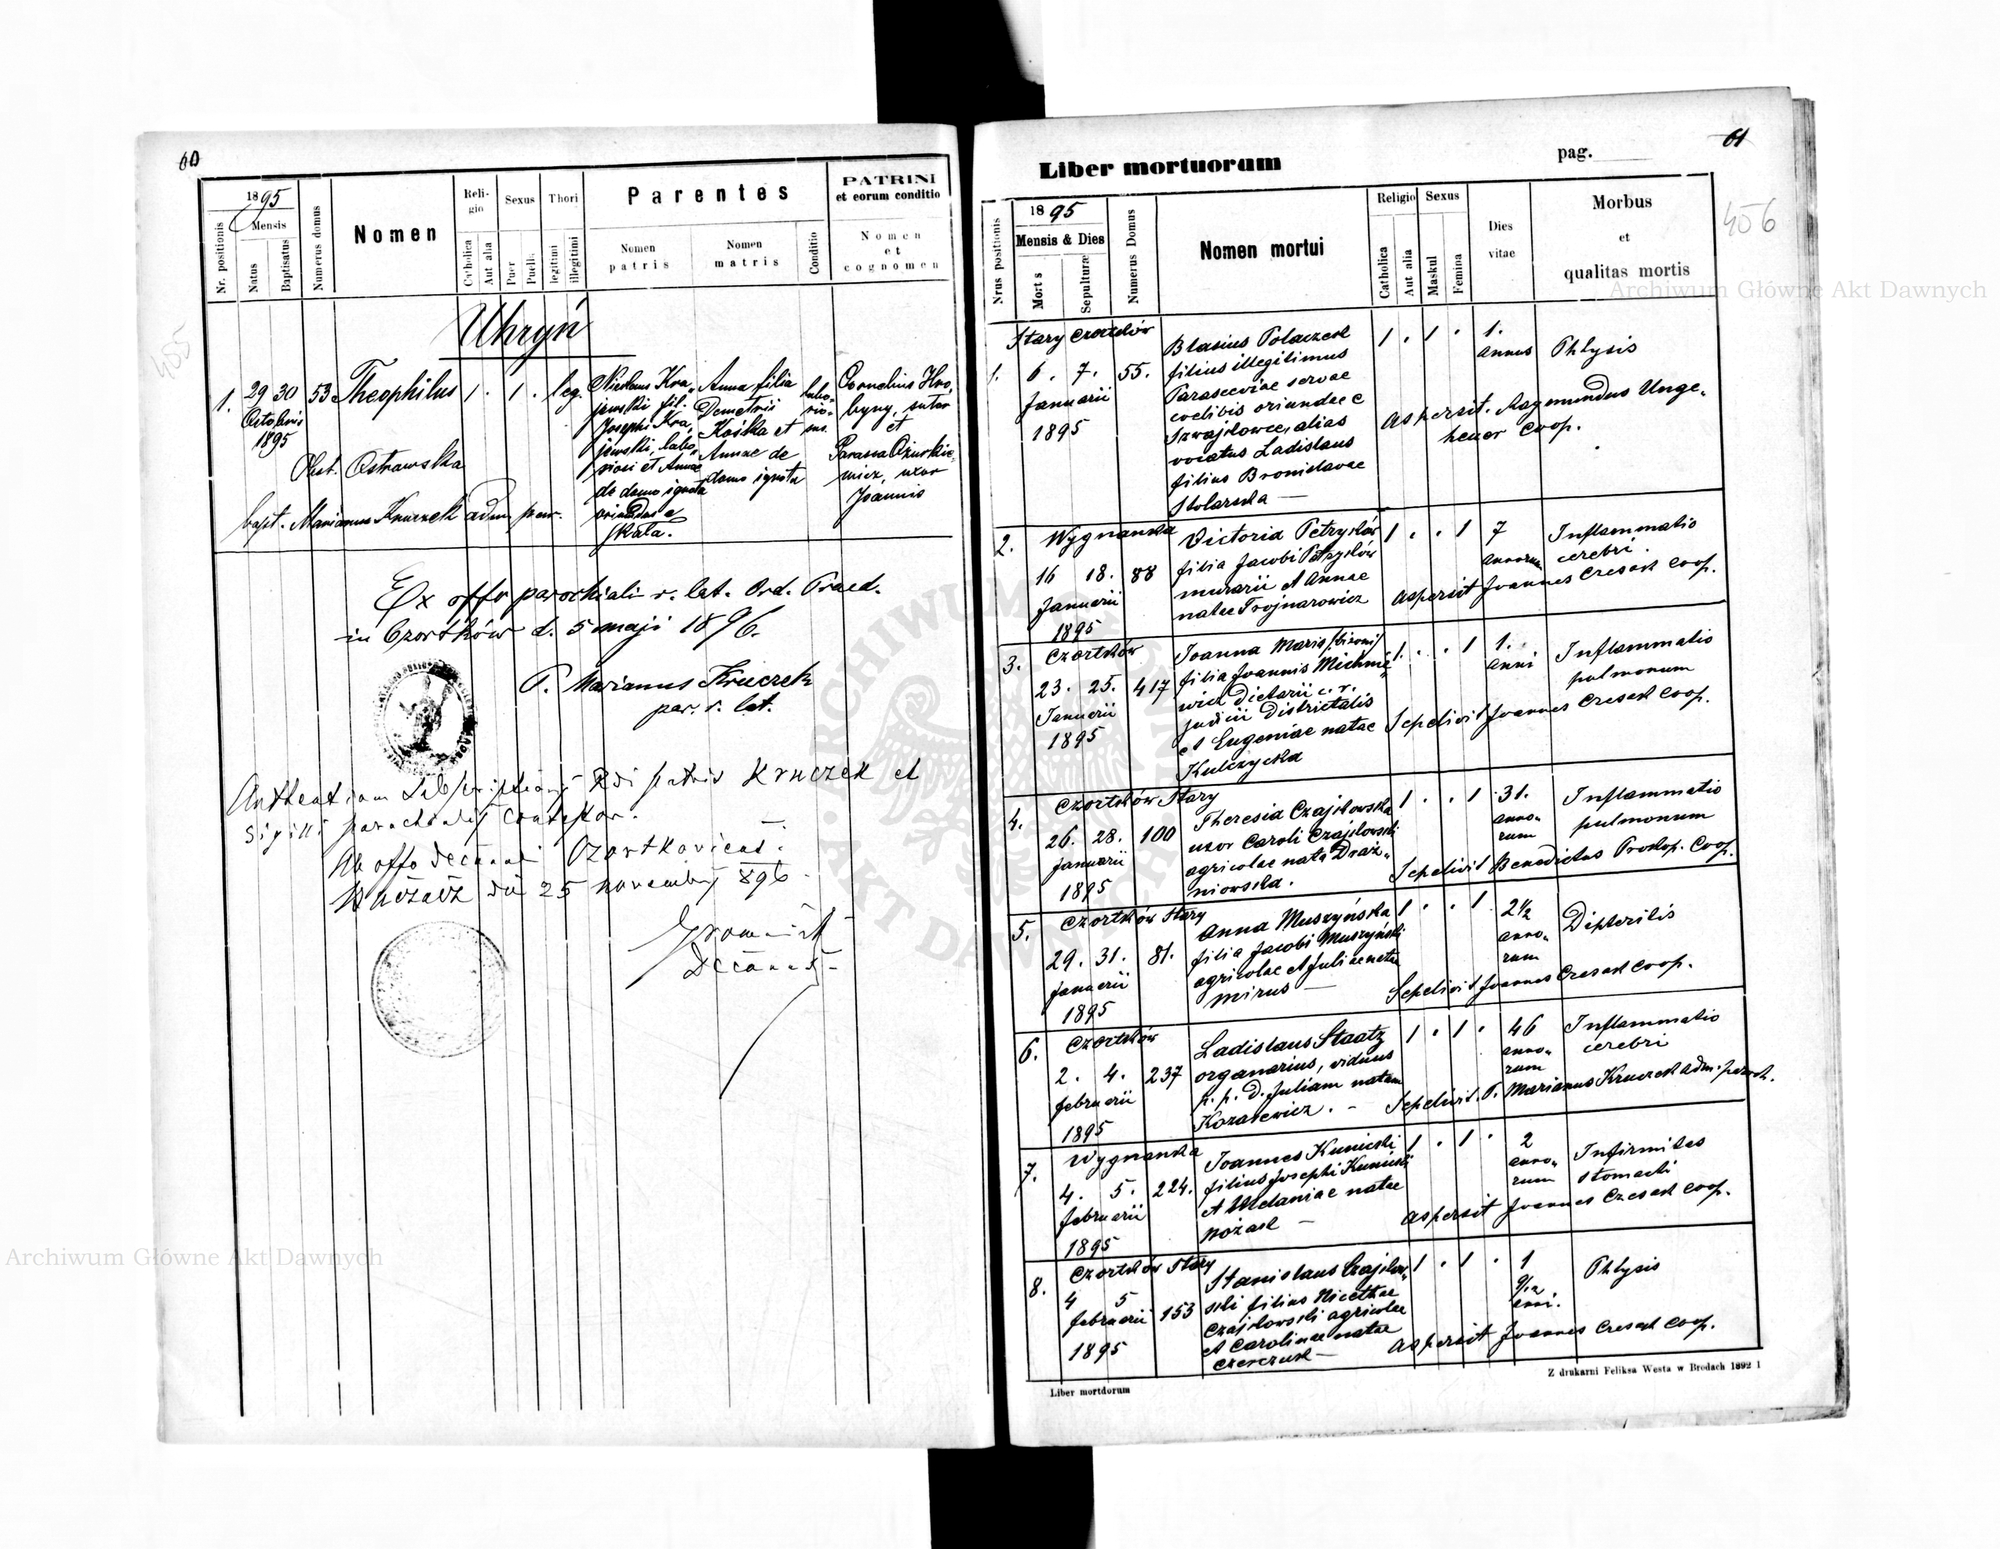 60
1895
Mensis
Nr. positionis
Natus
Baptisatus
Numerus domus
Nomen
Religio
Catholica
Aut alia
Sexus
Puer
Puella
Thori
legitimi
illegitimi
Parentes
Nomen patris
Nomen matris
Conditio
PATRINI
et eorum conditio
Nomen
et
cognomen
Uhryń
1. 29 30 53 Theophilus 1 . 1 . leg.
Octobris
1895
Nicolaus Kra„
jewski fil.
Josephi Kra„
jewski, labo„
riosi et Annae
de domo ignota
oriundus e
Skała.
Anna filia
Demetrii
Kośka et
Annae de
domo ignota
labo„
rio„
sus.
Cornelius Hro„
byny, sutor
et
Parania Ożurkie„
wicz, uxor
Joannis
Obst. Ostrawska
bapt. Marianus Kruczek adm. par.
Ex offo parochiali r. lat. Ord. Praed.
in Czortków d. 5 maji 1896.
P. Marianus Kruczek
par. r. lat.
Rdi patris Kruczek et
Sigilli parochialis
Ab offo Decanali Czortkoviens.
Buczacz die 25 novembris 896
Gromnicki
Decanus
405
61
Liber mortuorum
pag.
456
1895
Mensis & Dies
Nrus positionis
Mortis
Sepulturæ
Numerus Domus
Nomen mortui
Religio
Catholica
Aut alia
Sexus
Maskul
Femina
Dies
vitae
Morbus
et
qualitas mortis
Stary Czortków
1. 6. 7. 55.
Januarii
1895
Blasius Polaczek
filius illegitimus
Parasceviae servae
coelibis oriundae e
Szwajkowce, alias
vocatus Ladislaus
filius Bronislavae
Stolarska —
1 . 1 . 1. annus Phtysis
Aspersit. Raymundus Unge„
heuer Coop.
2. Wygnanka
16 18. 88
Januarii
1895
Victoria Petryków
filia Jacobi Petryków
murarii et Annae
natae Trojnarowicz
1 . . 1 7 annorum Inflammatio
cerebri.
Aspersit Joannes Czesak Coop.
3. Czortków
23. 25. 417
Januarii
1895
Joanna Maria /binomi/
filia Joannis Michnie„
wicz Dietarii c. r.
judicii Districtalis
et Eugeniae natae
Kulczycka
1. . . 1 1. anni Inflammatio
pulmonum
Sepelivit Joannes Czesak Coop.
4. Czortków Stary
26. 28. 100
Januarii
1895
Theresia Czajkowska
uxor Caroli Czajkowski
agricolae nata Draż„
niowska.
1 . . 1 31. anno„
rum
Inflammatio
pulmonum
Sepelivit Benedictus Prokop. Coop.
5. Czortków Stary
29. 31. 81.
Januarii
1895
Anna Muszyńska
filia Jacobi Muszyński
agricolae et Juliae natae
Mirus —
1 . . 1. 2½ anno„
rum
Dipteritis
Sepelivit Joannes Czesak Coop.
6. Czortków
2. 4. 237
februarii
1895
Ladislaus Staatz
organarius, viduus
p. p. D. Juliam natam
Kozakewicz. —
1 . 1 . 46
anno„
rum
Inflammatio
cerebri
Sepelivit. P. Marianus Kruczek adm. paroch.
7. Wygnanka
4. 5. 224.
februarii
1895
Joannes Kunicki
filius Josephi Kunicki
et Melaniae natae
Nożak —
1 . 1 . 2
anno„
rum
Infirmitas
stomachi
Aspersit Joannes Czesak Coop.
8. Czortków Stary
4 5
februarii 153
1895
Stanislaus Czajkow„
ski filius Nicethae
Czajkowski agricolae
et Carolinae natae
Czerczuk —
1 . 1 . 1
9/12
anni.
Phtysis
Aspersit Joannes Czesak Coop.
Liber mortdorum
Z drukarni Feliksa Westa w Brodach 1892 1
Archiwum Główne Akt Dawnych
Archiwum Główne Akt Dawnych